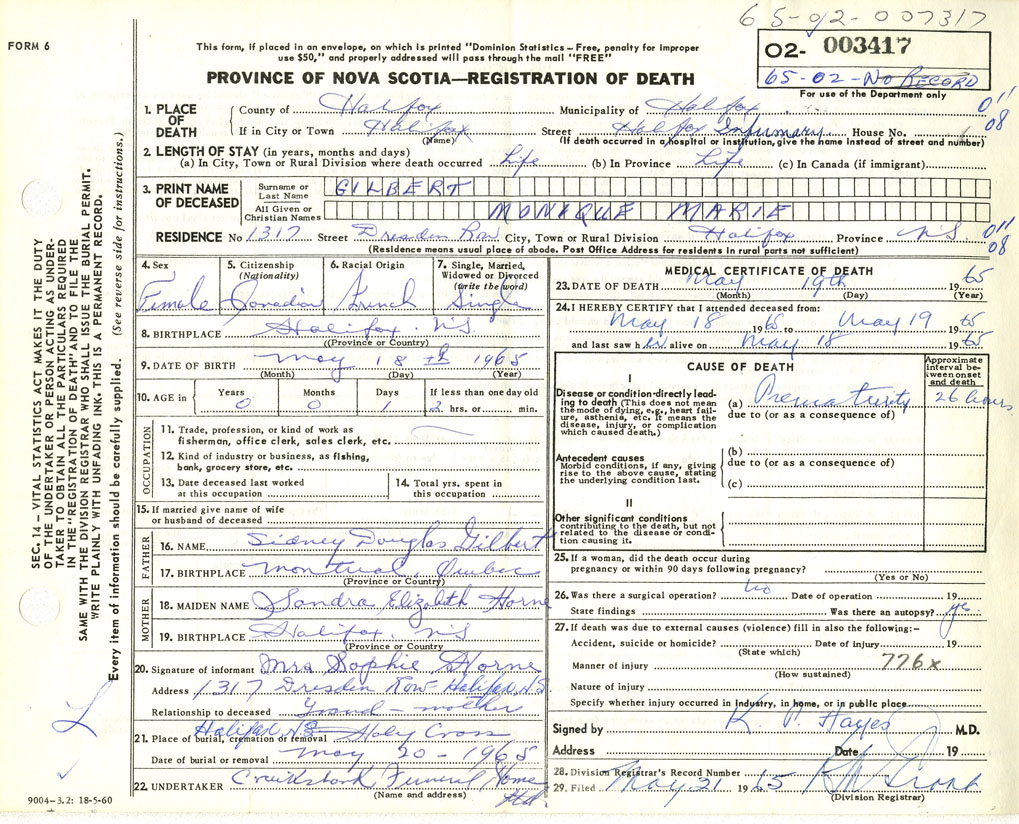 65-02-007317
FORM 6
This form, if placed in an envelope, on which is printed "Dominion Statistics – Free, penalty for improper
use $50," and properly addressed will pass through the mail "FREE"
O2- 003417
65-02-No RECORD
For use of the Department only
PROVINCE OF NOVA SCOTIA—REGISTRATION OF DEATH
1. PLACE OF DEATH
County of Halifax Municipality of Halifax
011
08
If in City or Town Halifax Street Halifax Infirmary House No.
(Name) (If death occurred in a hospital or institution, give the name instead of street and number)
2. LENGTH OF STAY (in years, months and days)
(a) In City, Town or Rural Division where death occurred Life (b) In Province Life (c) In Canada (if immigrant)
3. PRINT NAME OF DECEASED
Surname or Last Name GILBERT
All Given or Christian Names MONIQUE MARIE
RESIDENCE No 1317 Street Dresden Row City, Town or Rural Division Halifax Province NS
011
08
(Residence means usual place of abode. Post Office Address for residents in rural parts not sufficient)
4. Sex Female
5. Citizenship (Nationality) Canadian
6. Racial Origin French
7. Single, Married, Widowed or Divorced (write the word) Single
8. BIRTHPLACE Halifax. NS
(Province or Country)
9. DATE OF BIRTH May 18th 1965
(Month) (Day) (Year)
10. AGE in Years 0 Months 0 Days 1 If less than one day old 2 hrs. or min.
OCCUPATION
11. Trade, profession, or kind of work as
fisherman, office clerk, sales clerk, etc.
12. Kind of industry or business, as fishing,
bank, grocery store, etc.
13. Date deceased last worked
at this occupation
14. Total yrs. spent in
this occupation
15. If married give name of wife
or husband of deceased
FATHER
16. NAME Sidney Douglas Gilbert
17. BIRTHPLACE Montreal, Quebec
(Province or Country)
MOTHER
18. MAIDEN NAME Sandra Elizabeth Horne
19. BIRTHPLACE Halifax. NS
(Province or Country
20. Signature of informant Mrs Sophie Horne
Address 1317 Dresden Row Halifax N.S.
Relationship to deceased Grand-mother
21. Place of burial, cremation or removal Halifax NS Holy Cross
Date of burial or removal May 20-1965
22. UNDERTAKER Cruikshank Funeral Home
(Name and address)
9004-3.2: 18-5-60
MEDICAL CERTIFICATE OF DEATH
23. DATE OF DEATH May 19th 1965
(Month) (Day) (Year)
24. I HEREBY CERTIFY that I attended deceased from:
May 18 1965 to May 19 1965
and last saw her alive on May 18 1965
CAUSE OF DEATH
Approximate interval between onset and death
I
Disease or condition directly leading to death (This does not mean the mode of dying, e.g., heart failure, asthenia, etc. It means the disease, injury, or complication which caused death.)
(a) Prematurity 26 hours
due to (or as a consequence of)
Antecedent causes
Morbid conditions, if any, giving rise to the above cause, stating the underlying condition last.
(b)
due to (or as a consequence of)
(c)
II
Other significant conditions
contributing to the death, but not related to the disease or condition causing it.
25. If a woman, did the death occur during
pregnancy or within 90 days following pregnancy?
(Yes or No)
26. Was there a surgical operation? no Date of operation 19
State findings Was there an autopsy? yes
27. If death was due to external causes (violence) fill in also the following:–
Accident, suicide or homicide? Date of injury 19
(State which)
Manner of injury 776x
(How sustained)
Nature of injury
Specify whether injury occurred in Industry, in home, or in public place
Signed by K. P. Hayes M.D.
Address Date 19
28. Division Registrar's Record Number
29. Filed May 21 1965
(Division Registrar)
SEC. 14 – VITAL STATISTICS ACT MAKES IT THE DUTY
OF THE UNDERTAKER OR PERSON ACTING AS UNDER-
TAKER TO OBTAIN ALL THE PARTICULARS REQUIRED
IN THE "REGISTRATION OF DEATH" AND TO FILE THE
SAME WITH THE DIVISION REGISTRAR WHO SHALL ISSUE THE BURIAL PERMIT.
WRITE PLAINLY WITH UNFADING INK. THIS IS A PERMANENT RECORD.
Every item of information should be carefully supplied. (See reverse side for instructions.)